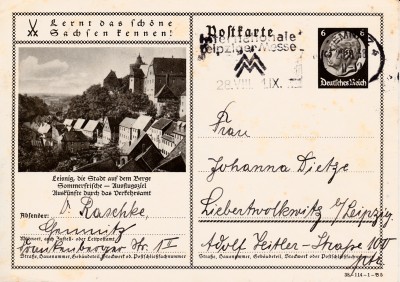 Lernt das schöne
Sachsen kennen!
Leisnig, die Stadt auf dem Berge
Sommerfrische — Ausflugsziel
Auskünfte durch das Verkehrsamt
Absender:
Raschke,
Chemnitz
Wohnort, auch Zustell- oder Leitpostamt
Frankenberger Str. 1 II
Straße, Hausnummer, Gebäudeteil, Stockwerk od. Postschließfachnummer
Postkarte
Internationale
Leipziger Messe
28.VIII. 1.IX.
6 6
Deutsches Reich
Frau
Johanna Dietze
Liebertwolkwitz b/Leipzig.
Adolf Hitler-Straße 100
ptr.
Straße, Hausnummer, Gebäudeteil, Stockwerk oder Postschließfachnummer